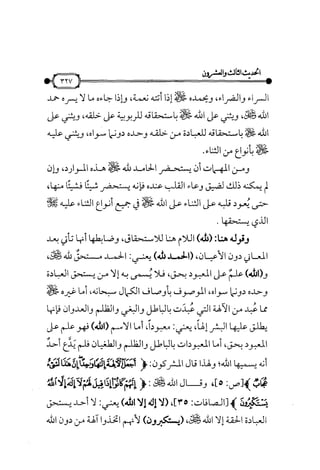 الحديث الثالث والعشرون
٣٢٧
السراء والضراء، ويحمده ﷺ إذا أتته نعمة، وإذا جاءه ما لا يسره حمد
الله ﷻ، ويثني على الله باستحقاقه للربوبية على خلقه، ويثني على
الله ﷻ باستحقاقه للعبادة من خلقه وحده دونما سواه، ويثني عليه
بأنواع من الثناء.
ومن المهمات أن يستحضر الحامد لله ﷻ هذه الموارد، وإن
لم يمكنه ذلك لضيق وعاء القلب عنده فإنه يستحضر شيئًا فشيئًا منها،
حتى يُعود قلبه على الثناء على الله ﷻ في جميع أنواع الثناء عليه ﷻ
الذي يستحقها.
وقوله هنا: (لله) اللام هنا للاستحقاق، وضابطها أنها تأتي بعد
المعاني دون الأعيان، (الحمد لله) يعني: الحمد مستحقٌ لله ﷻ،
و(الله) علمٌ على المعبود بحق، فلا يُسمى به إلا من يستحق العبادة
وحده دونما سواه، الموصوف بأوصاف الكمال سبحانه، أما غيره ﷻ
مما عُبد من الآلهة التي عُبدت بالباطل والبغي والظلم والعدوان فإنها
يطلق عليها البشر إلهًا، يعني: معبودًا، أما الاسم (الله) فهو علم على
المعبود بحق، أما المعبودات بالباطل والظلم والطغيان فلم يَدَّع أحدٌ
أنه يسميها الله؛ ولهذا قال المشركون: ﴿أَجَعَلَ ٱلْآلِهَةَ إِلَٰهًا وَٰحِدًا إِنَّ هَٰذَا لَشَىْءٌ
عُجَابٌ﴾ [ص: ٥]، وقال الله ﷻ: ﴿إِنَّهُمْ كَانُوٓا۟ إِذَا قِيلَ لَهُمْ لَآ إِلَٰهَ إِلَّا ٱللَّهُ
يَسْتَكْبِرُونَ﴾ [الصافات: ٣٥]، (لا إله إلا الله) يعني: لا أحد يستحق
العبادة الحقة إلا الله ﷻ، (يستكبرون) لأنهم اتخذوا آلهة من دون الله